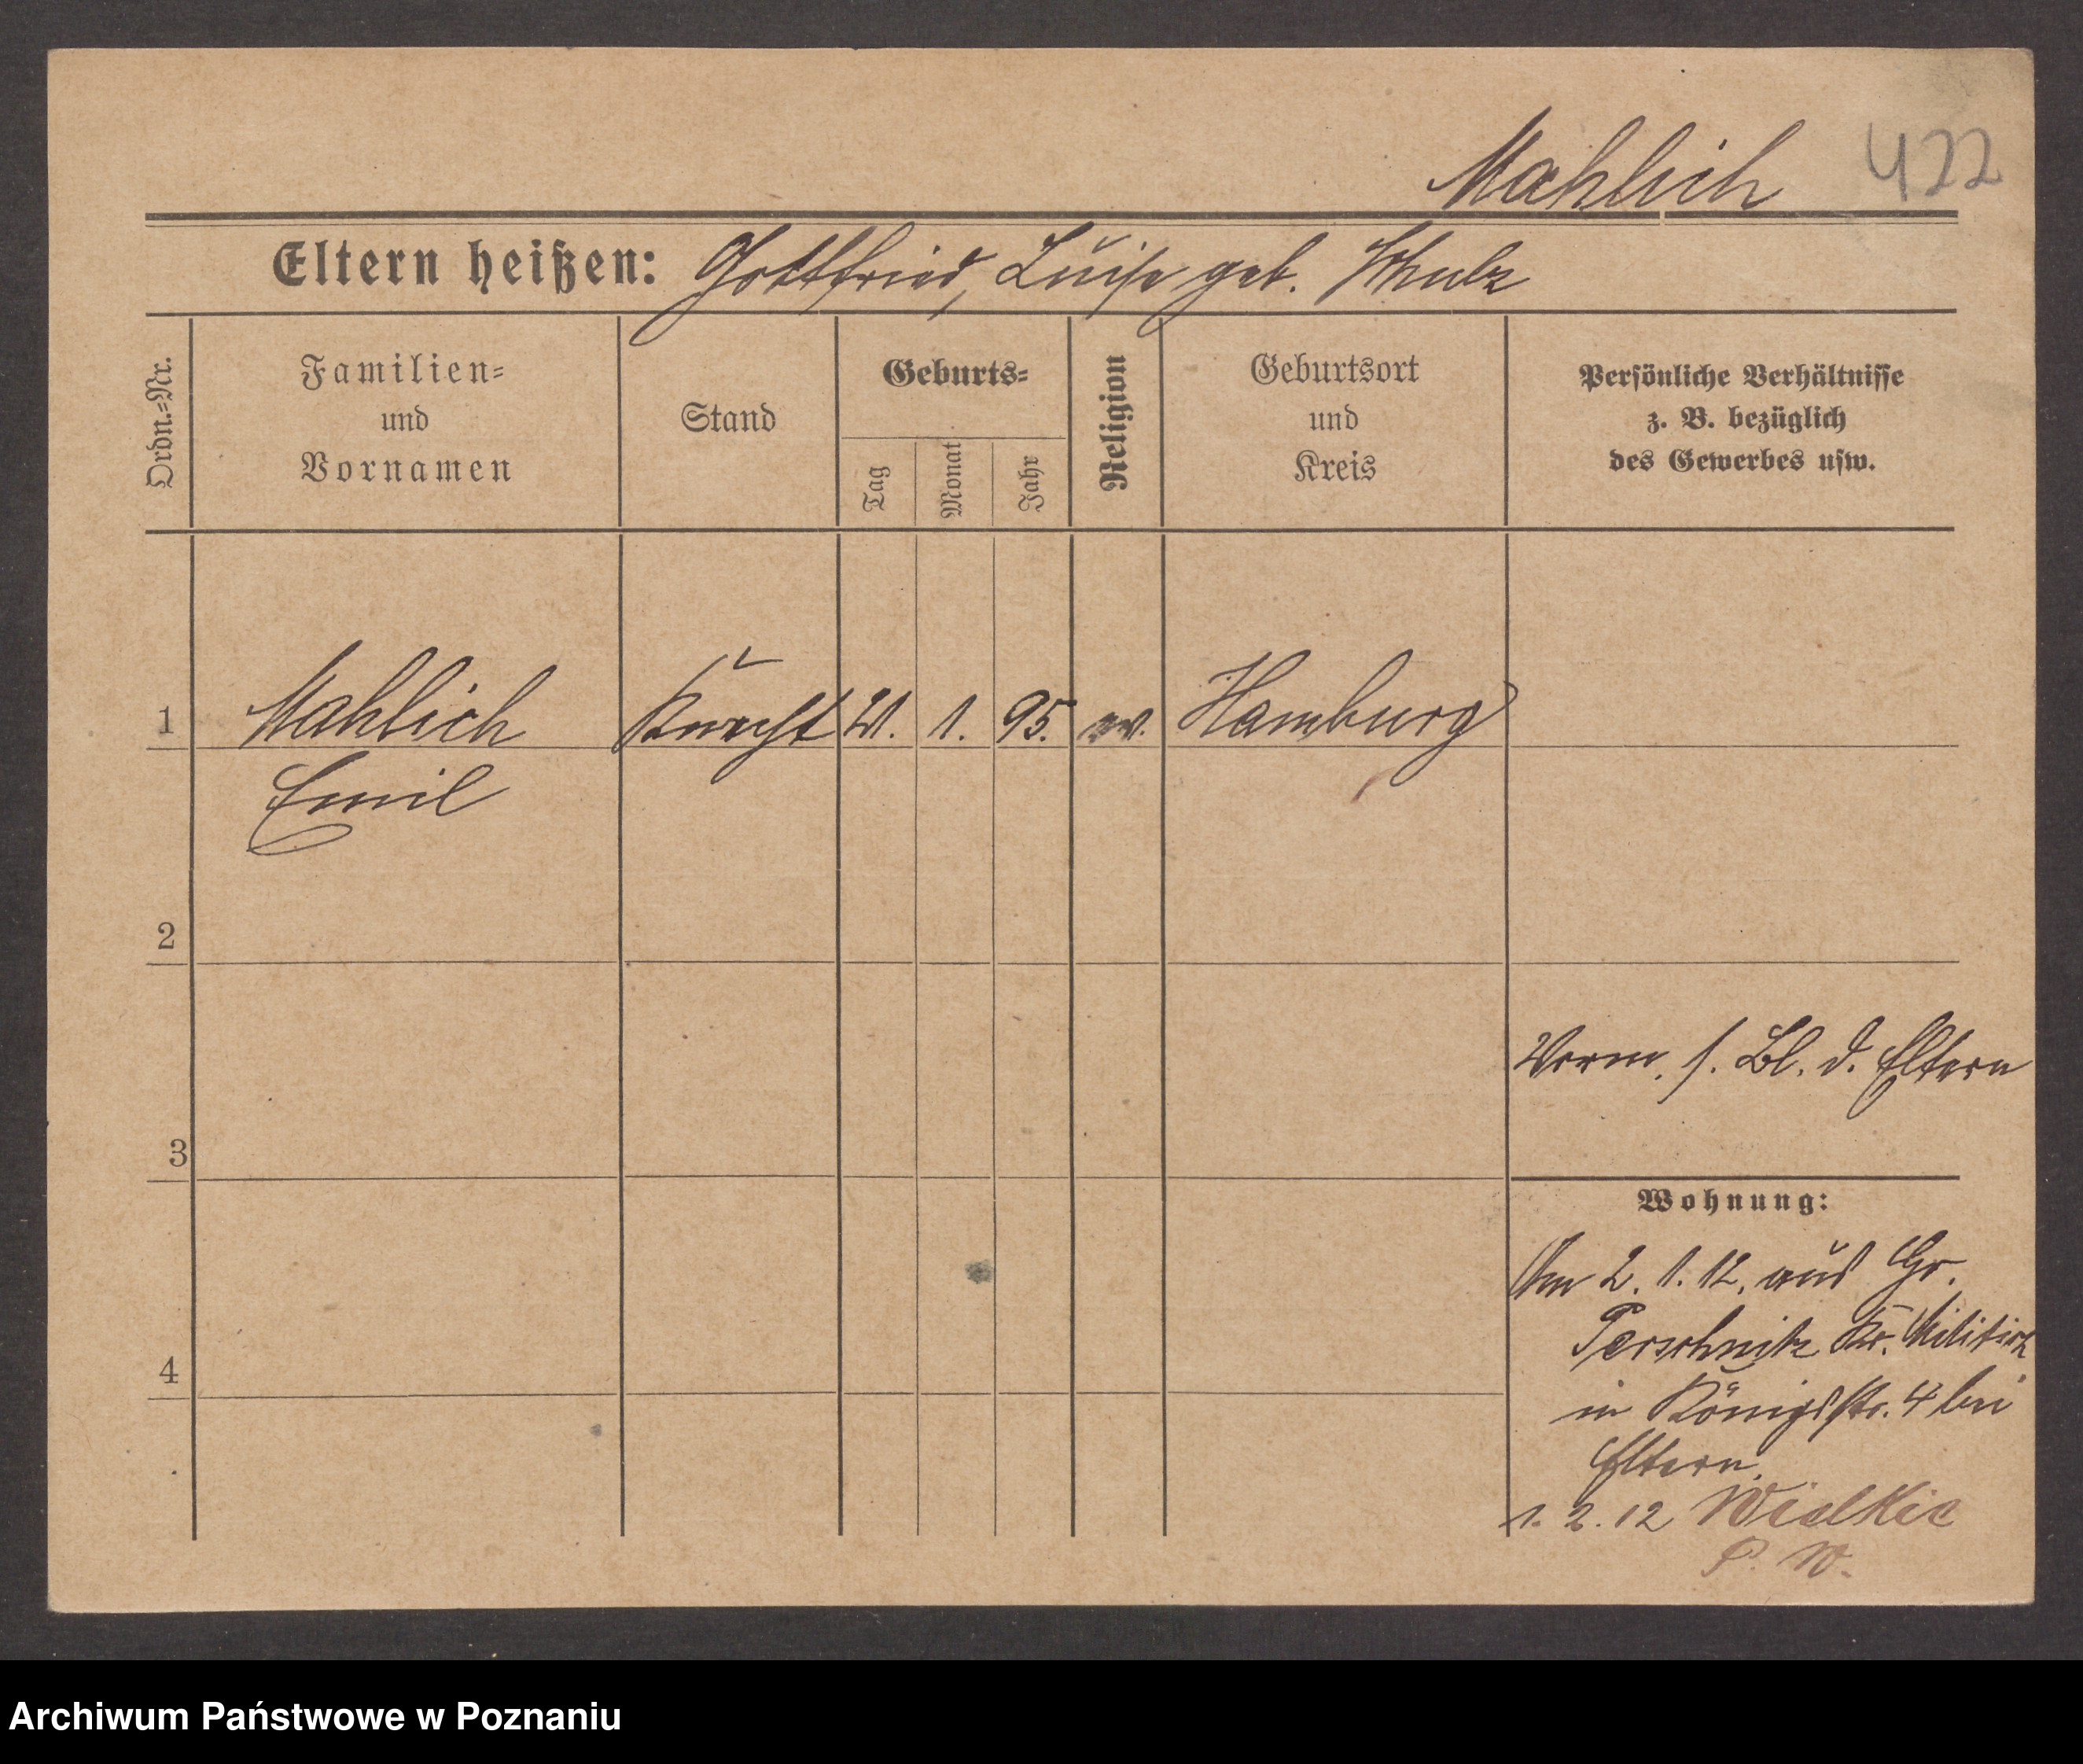 Mahlich 422
Eltern heißen: Gottfried, Luise geb. Schulz
Ordn.=Nr.
Familien=
und
Vornamen
Stand
Geburts=
Tag
Monat
Jahr
Religion
Geburtsort
und
Kreis
Persönliche Verhältnisse
z. B. bezüglich
des Gewerbes usw.
1 Mahlich Knecht 21. 1. 95. ev. Hamburg
Emil
2
Verm. s. Bl. d. Eltern
3
Wohnung:
Am 2. 1. 12. aus Gr.
Perschnitz Kr. Militsch
4
in Königsstr. 4 bei
Eltern.
1. 2. 12
P. W.
Archiwum Państwowe w Poznaniu